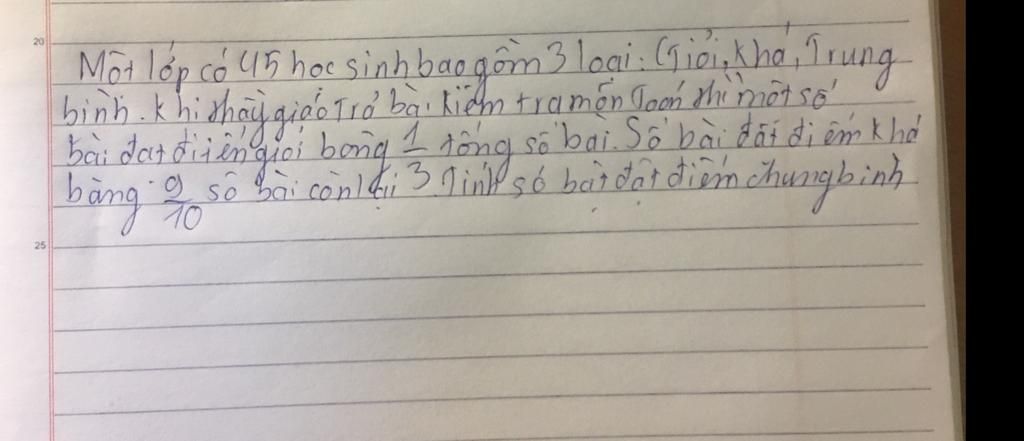 20
Một lớp có 45 học sinh bao gồm 3 loại: Giỏi, Khá, Trung
bình. Khi thầy giáo Trả bài kiểm tra môn Toán thì một số
bài đạt điểm giỏi bằng 1/3 tổng số bài. Số bài đạt điểm khá
bằng 9/10 số bài còn lại. Tính số bài đạt điểm chung bình
25